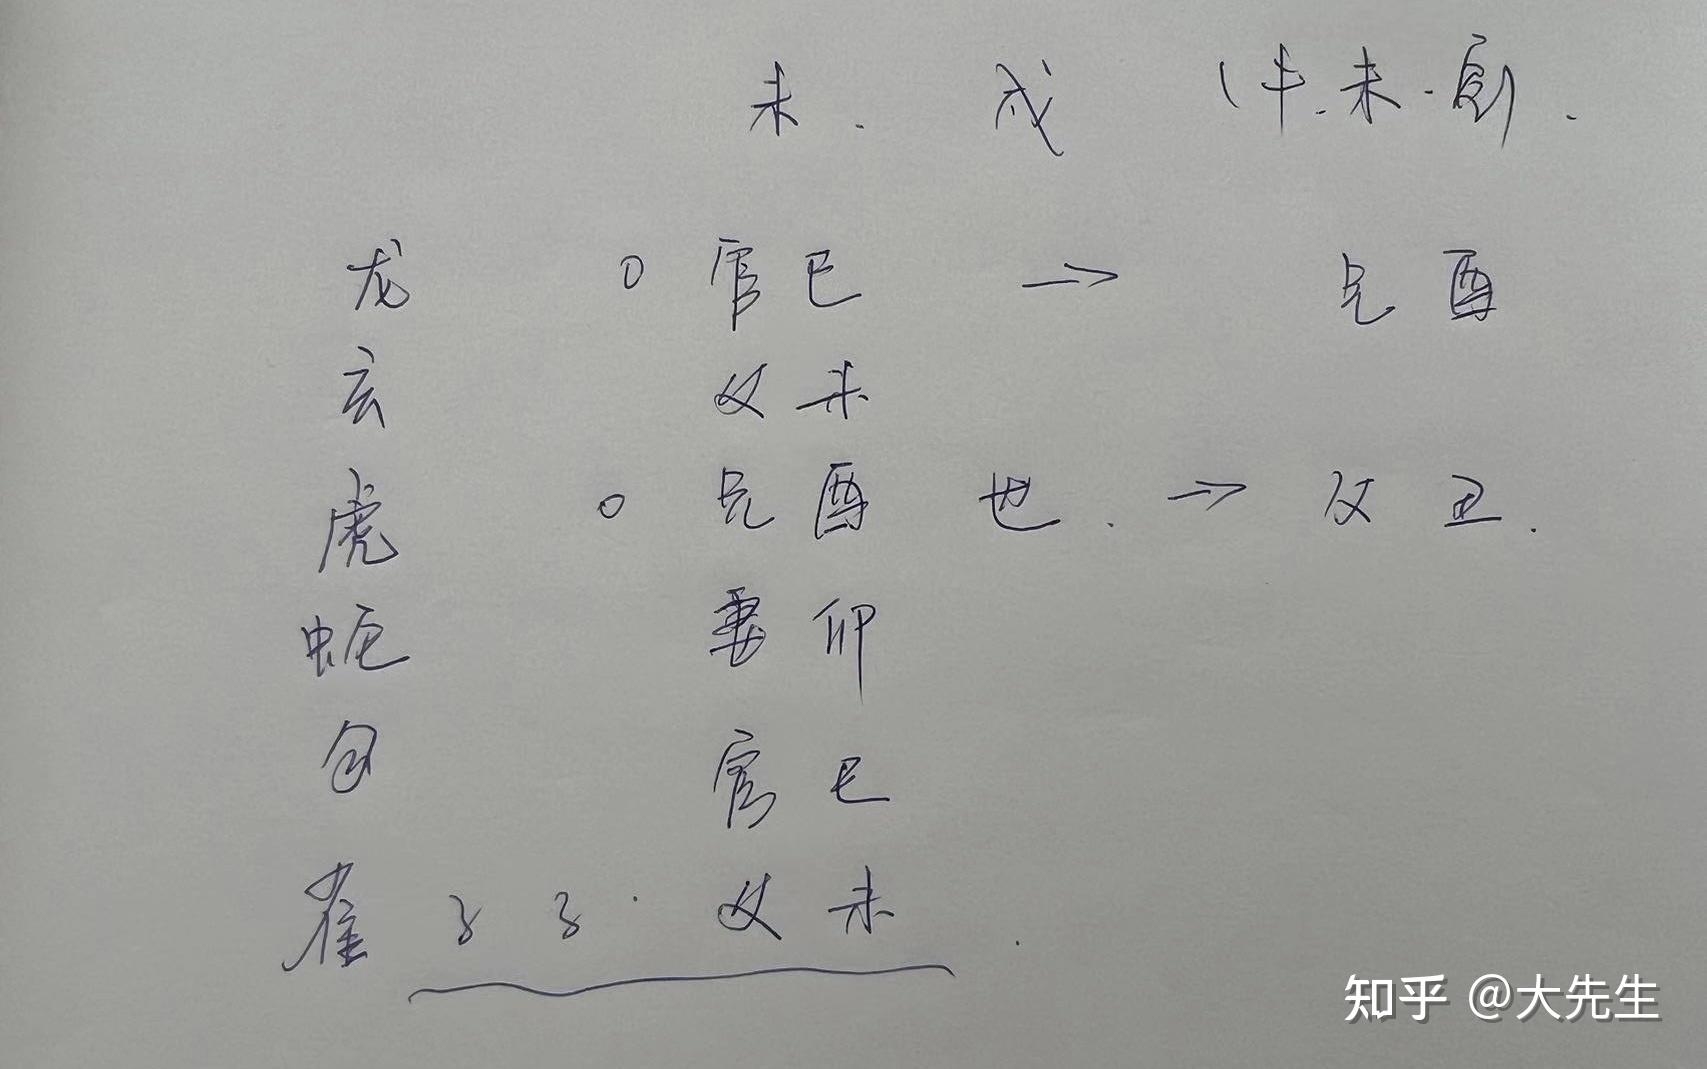 未. 戌 (午.未.旬).
龙 0 官巳 → 兄酉
玄 父未
虎 0 兄酉 世. → 父丑.
蛇 妻卯
勾 官巳
雀 父未.
知乎 @大先生